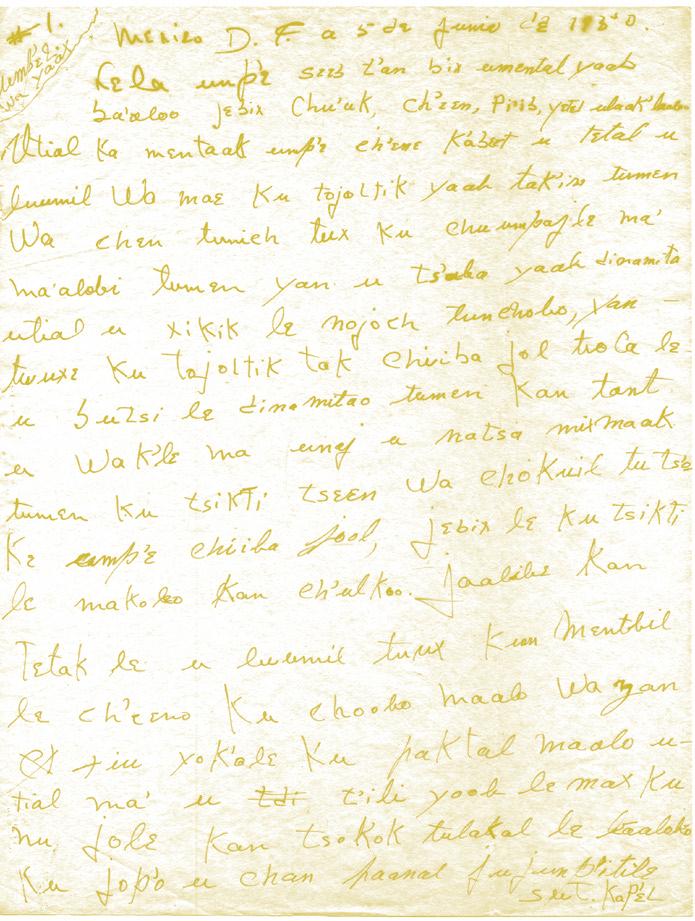 # 1.
Mexico D. F. a 5 de Junio de 1930.
wa yaax
Lela ump'e seeb t'an bix umental yaab
ba'aloo jebix Chu'uk, ch'een, Piib, yetel ulaak'
Utial Ka mentaak ump'e ch'ene K'abeet u tetal u
luumil Wa mae Ku tojoltik yaab takin tumen
Wa chen tunich tux Ku chu'umpajle ma'
ma'alobi tumen yan u yaab dinamita
utial u xikik le nojoch tunchobo, yan -
tuuxe Ku tojoltik tak chiiba jol le
u butsi le dinamitao tumen Kan tant
u Wak'le ma unaj u natsa mixmaak
tumen Ku tsikti tseen wa choKuil tu
Ke ump'e chiiba jool, jebix le Ku tsikti
le makobo Kan ch'ulkoo. Jaalibe Kan
Tetak le u luumil tuux Kun Mentbil
le ch'eeno Ku choobo maalo wa yan
xiu xok'ole Ku paktal maalo u-
tial ma' u t'ili yook le max Ku
nu jole Kan tsoKok tulakal le
Ku jop'o u chan paanal jujunp'itile
suut. Kap'el